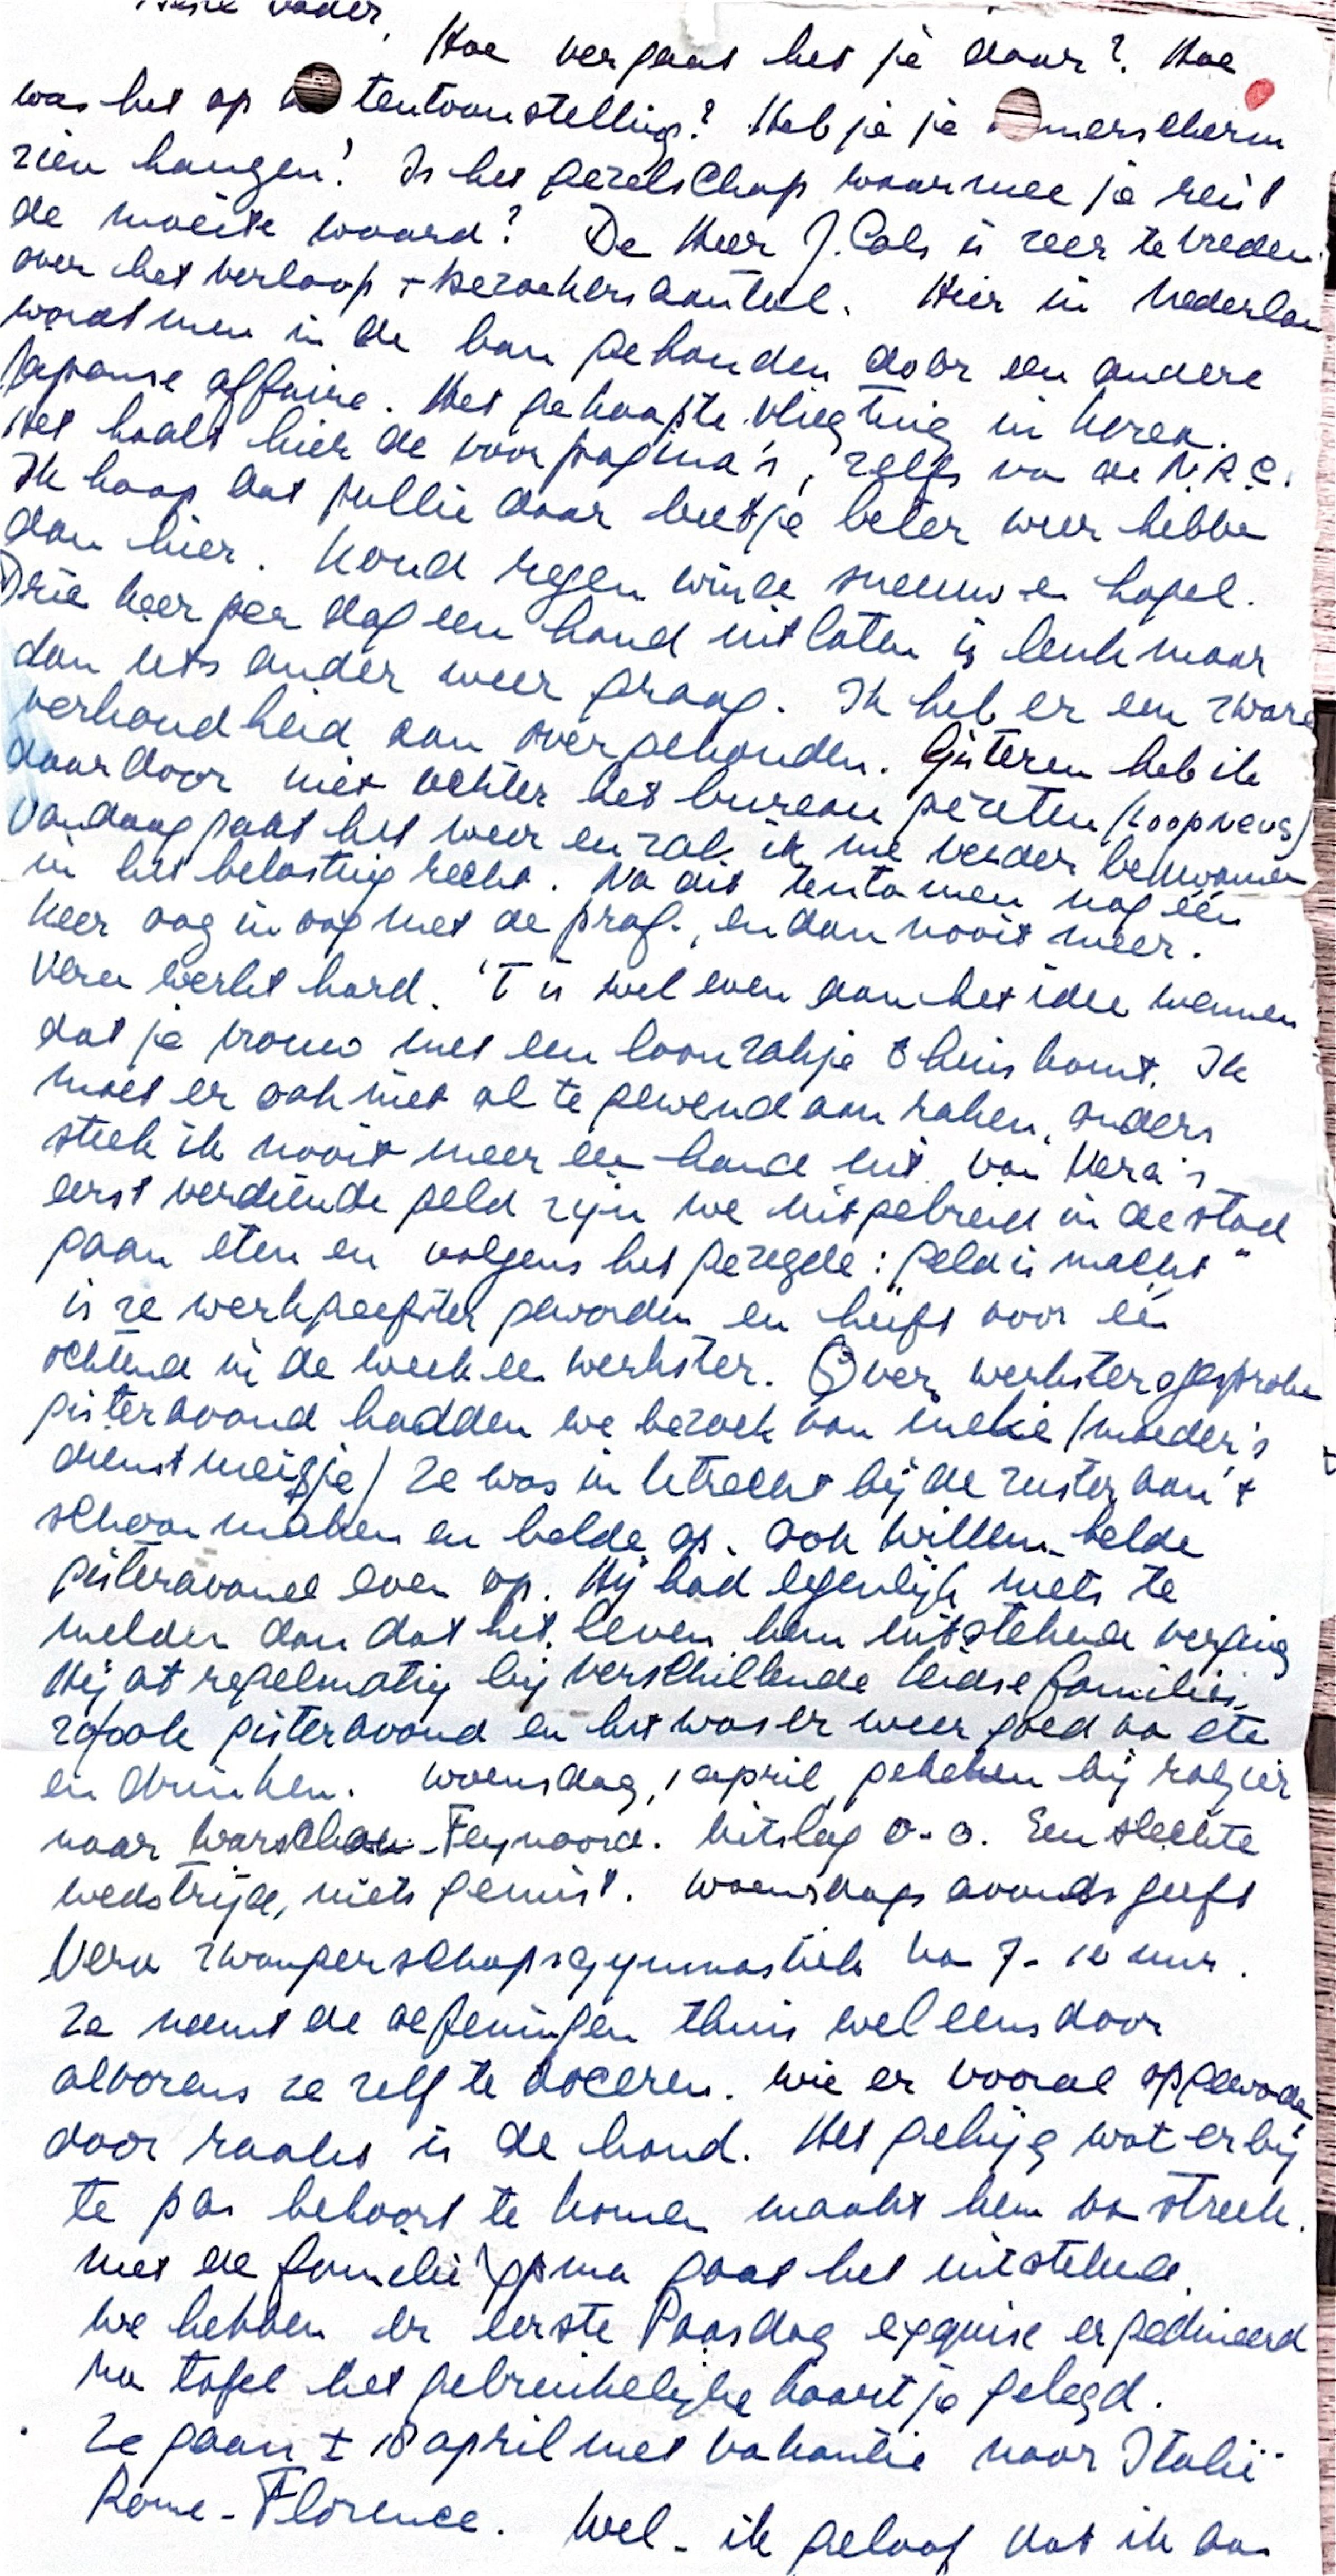 vader,
Hoe vergaat het je daar? Hoe
was het op tentoonstelling? Heb je je merscherm
zien hangen? Is het gezelschap waarmee je reist
de moeite waard? De Heer J. Cals is zeer tevreden
over het verloop + bezoekersaantal. Hier in Nederlan
wordt men in de ban gehouden door een andere
Japanse affaire. Het gekaapte vliegtuig in Korea.
Het haalt hier de voorpagina's, zelfs va de N.R.C.
Ik hoop dat jullie daar beetje beter weer hebbe
dan hier. Koud regen winde sneeuw en hagel.
Drie keer per dag een hond uitlaten is leuk maar
dan iets ander weer graag. Ik heb er een zware
verkoudheid aan overgehouden. Gisteren heb ik
daardoor niet achter het bureau gezeten (loopneus)
Vandaag gaat het weer en zal ik me verder bekwamen
in het belastingrecht. Na dit tentamen nog één
keer oog in oog met de prof., en dan nooit meer.
Vera werkt hard. 'T is wel even aan het idee wennen
dat je vrouw met een loonzakje thuis komt. Ik
moet er ook niet al te gewend aan raken, anders
steek ik nooit meer een hand uit. Van Vera's
eerst verdiende geld zijn we uitgebreid in de stad
gaan eten en volgens het gezegde: geld is macht"
is ze werkgeefster geworden en heeft voor éé
ochtend in de week een werkster. Over werkster gesproke
gisteravond hadden we bezoek van Ineke (moeder's
dienstmeisje) Ze was in Utrecht bij de zuster aan 't
schoonmaken en belde op. Ook Willem belde
gisteravond even op. Hij had eigenlijk niets te
melden dan dat het leven hem uitstekend verging
Hij at regelmatig bij verschillende Leidse families,
zo ook gisteravond en het was er weer goed va ete
en drinken. Woensdag, 1 april, gekeken bij Rogier
naar Warschau-Feynoord. Uitslag 0-0. Een slechte
wedstrijd, niets gemist. Woensdags avonds geeft
Vera zwangerschapsgymnastiek va 7-10 uur.
Ze neemt de oefeningen thuis wel eens door
alvorens ze zelf te doceren. Wie er vooral opgewonden
door raakt is de hond. Het gehijg wat erbij
te pas behoort te komen maakt hem va streek.
Met de familie gaat het uitstekend.
We hebben er eerste Paasdag exquise er gedineerd
na tafel het gebruikelijke kaartje gelegd.
Ze gaan ± 18 april met vakantie naar Italië
Rome-Florence. Wel - ik geloof dat ik aa